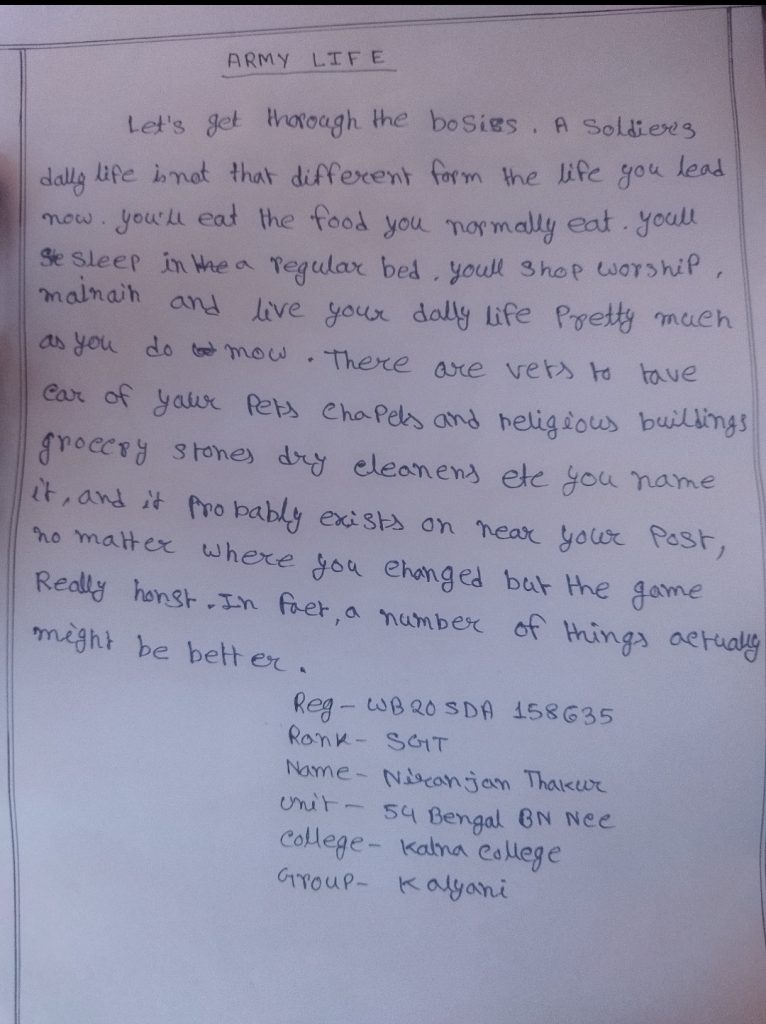 ARMY LIFE
Let's get thorough the bosies. A Soldiers
dally life is not that different form the life you lead
now. you'll eat the food you normally eat. youll
sleep in a regular bed, youll shop worship,
malnain and live your dally life Pretty much
as you do now. There are vets to tave
car of your Pets Chapels and religious buildings
groccry stores dry cleaners etc you name
it, and it Probably exists on near your Post,
no matter where you changed but the game
Really honst. In fact, a number of things actually
might be better.
Reg - WB20SDA 158635
Rank - SGT
Name - Niranjan Thakur
unit - 54 Bengal BN Ncc
College - Kalna College
Group - Kalyani